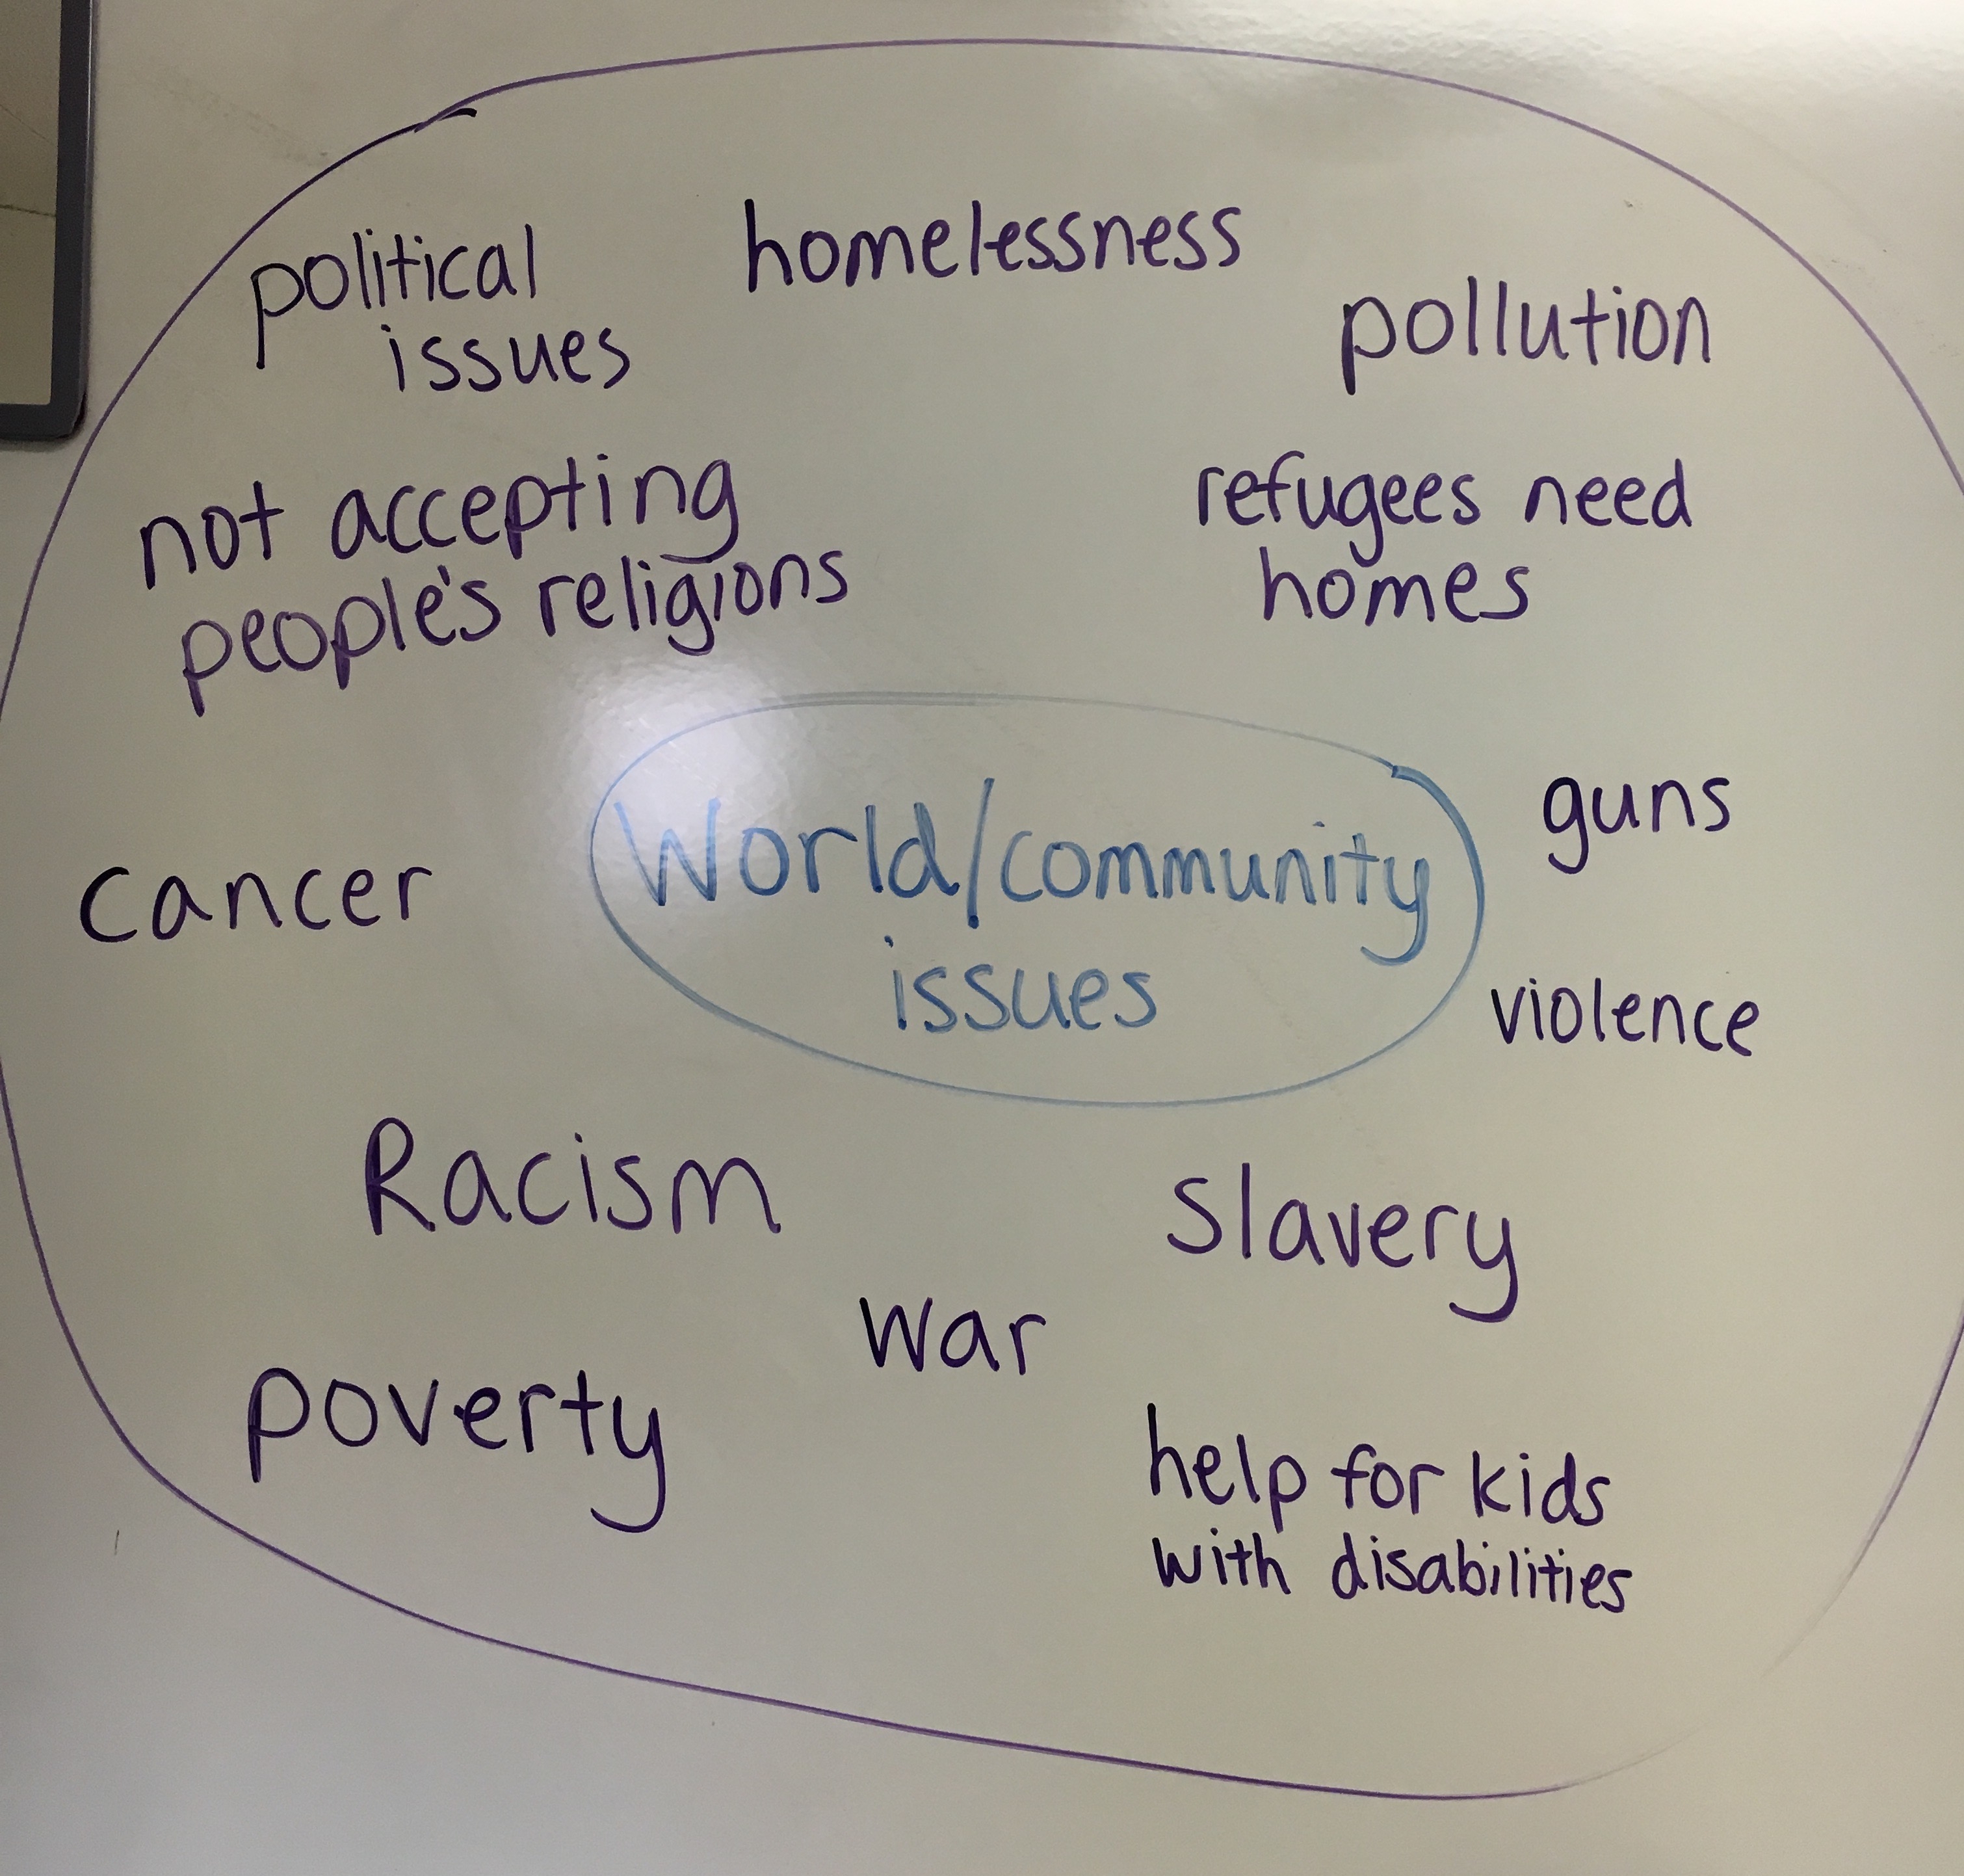 political
issues
homelessness
pollution
not accepting
people's religions
refugees need
homes
World/community
issues
guns
cancer
violence
Racism
Slavery
war
poverty
help for kids
with disabilities